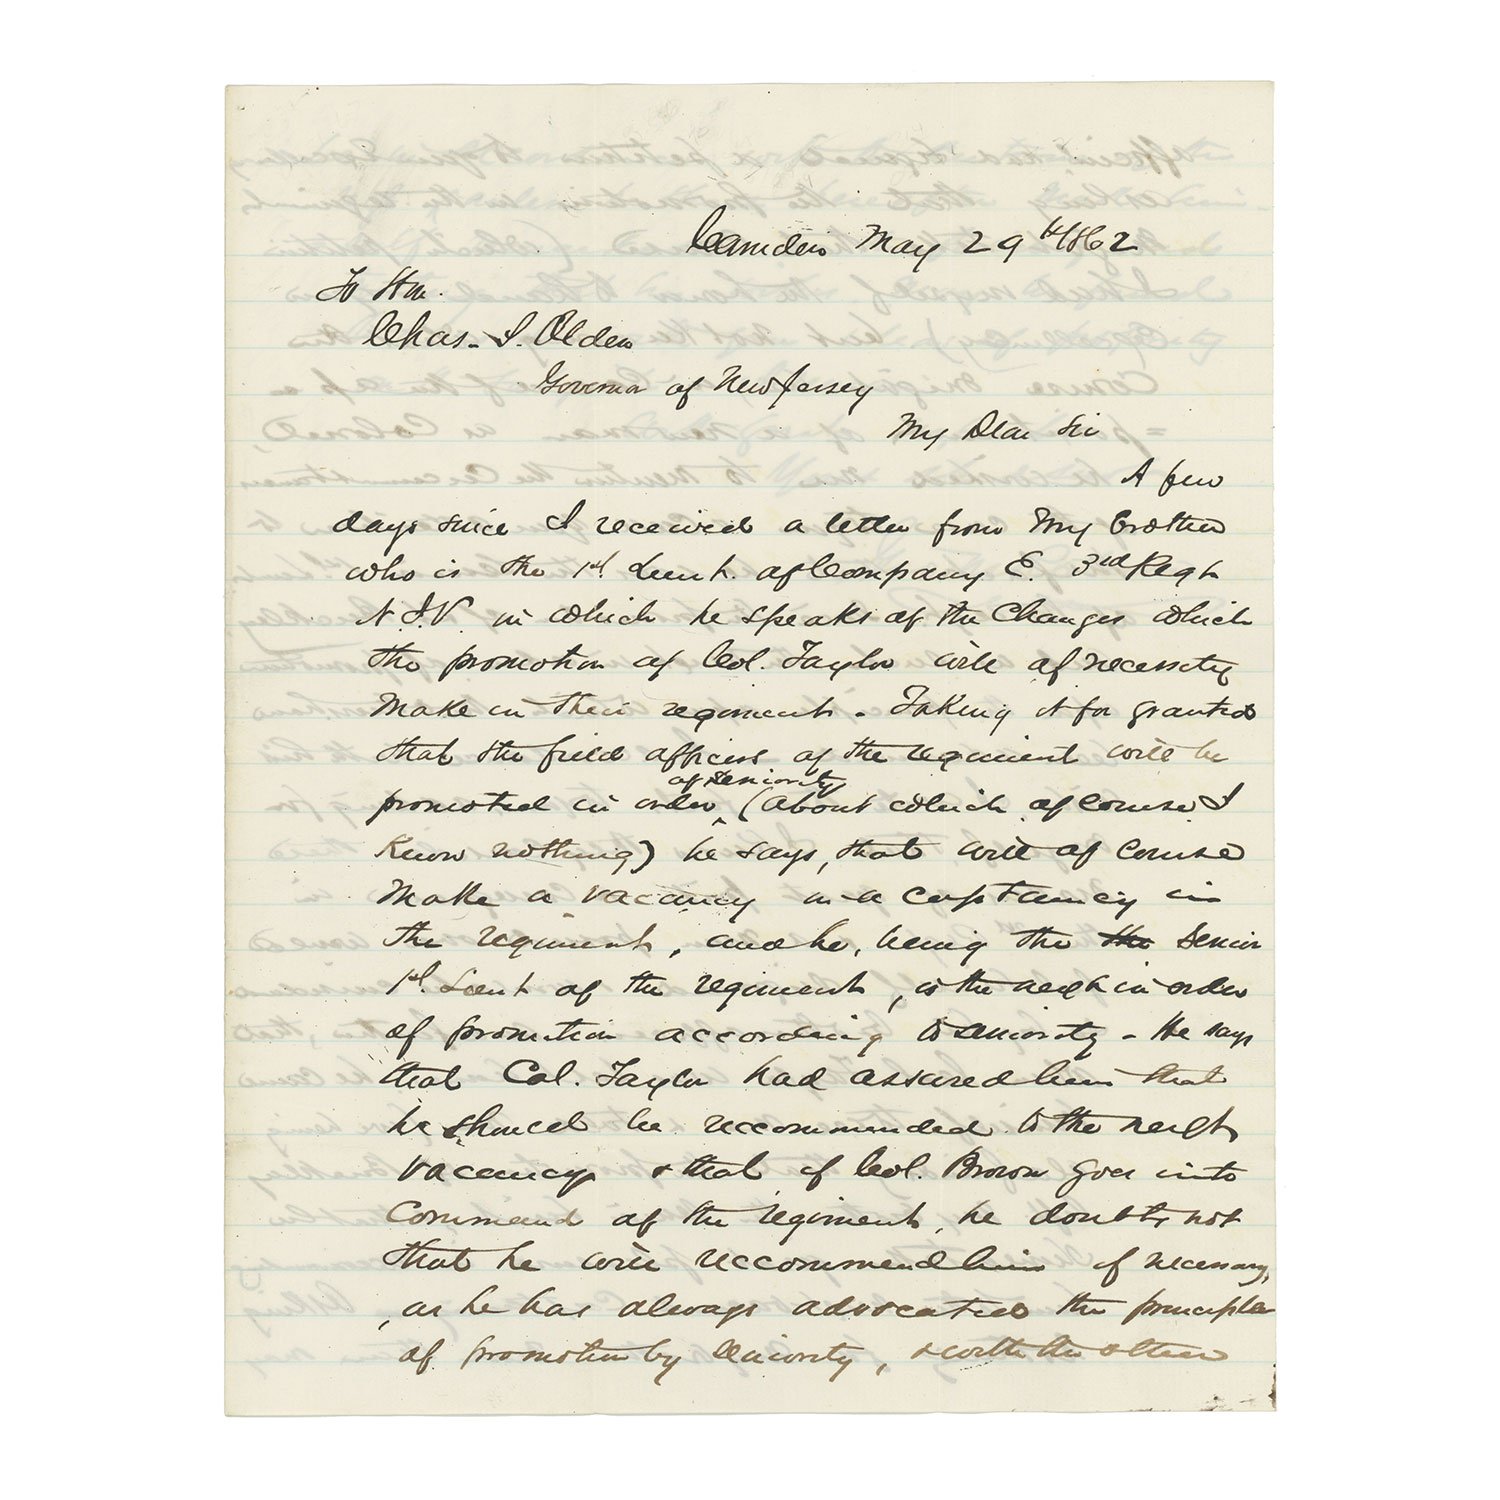 Camden May 29th 1862
To Hon.
Chas. S. Olden
Governor of New Jersey
My Dear Sir
A few
days since I received a letter from my brother
who is the 1st Lieut. of Company E. 3rd Regt
N.J.V. in which he speaks of the changes which
the promotion of Col. Taylor will of necessity
make in their regiment. Taking it for granted
that the field officers of the regiment will be
of seniority
promoted in order ^ (about which, of course I
know nothing) he says, that will of course
make a vacancy in a captaincy in
the regiment, and he, being the the senior
1st. Lieut of the regiment, is the next in order
of promotion according to seniority - He says
that Col. Taylor had assured him that
he should be recommended to the next
vacancy & that if Col. Brown goes into
command of the regiment, he doubts not
that he will recommend him if necessary,
, as he has always advocated the principle
of promotion by seniority, & with the other